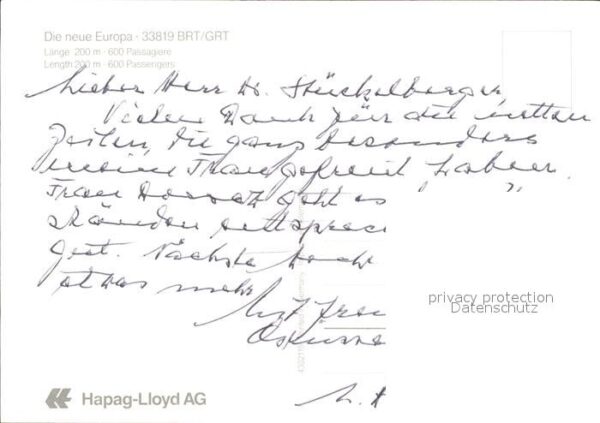 Die neue Europa · 33819 BRT/GRT
Länge 200 m · 600 Passagiere
Length 200 m · 600 Passengers
Lieber Herr Dr. Stückelberger,
Vielen Dank für die netten
Zeilen, die ganz besonders
meine Frau gefreut haben.
Frau geht es
den
gut. Nächste Woche
etwas mehr
privacy protection
Datenschutz
Hapag-Lloyd AG